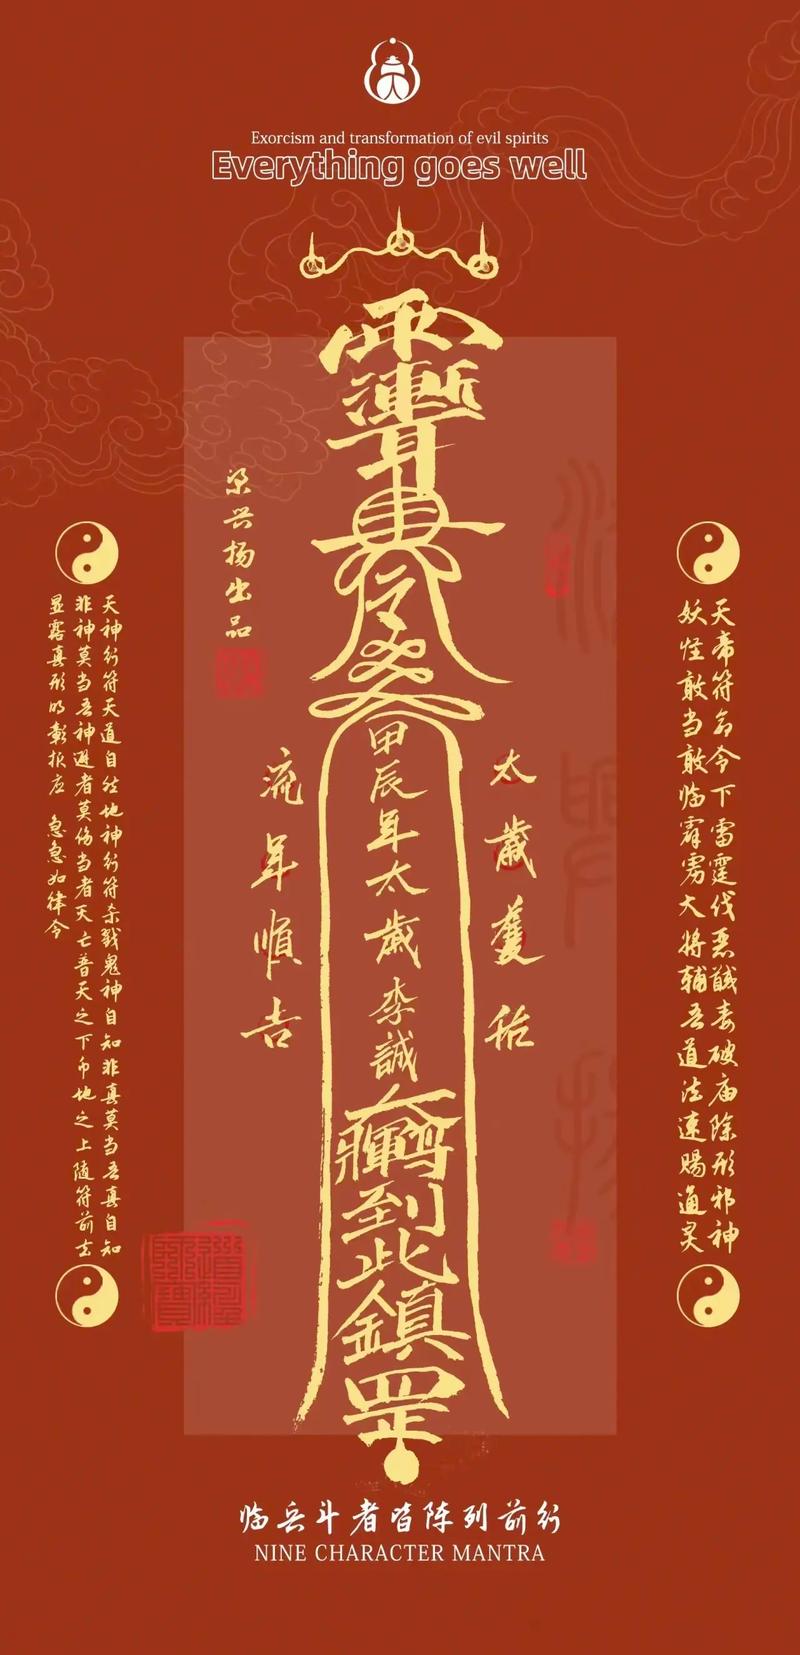 Exorcism and transformation of evil spirits
Everything goes well
梁兴扬出品
甲辰年太歲李誠
到此鎮
罡
太歲護祐
流年順吉
天帝符命令下雷霆伐恶馘毒破庙除形邪神
妖怪敢当敢临霹雳大将辅吾道法速赐通灵
天神行符天道自然地神行符杀戮鬼神自知非真莫当吾真自知
非神莫当吾神避者莫伤当者灭亡普天之下币地之上随符前去
显露真形明彰报应 急急如律令
道經師寶
临兵斗者皆陈列前行
NINE CHARACTER MANTRA